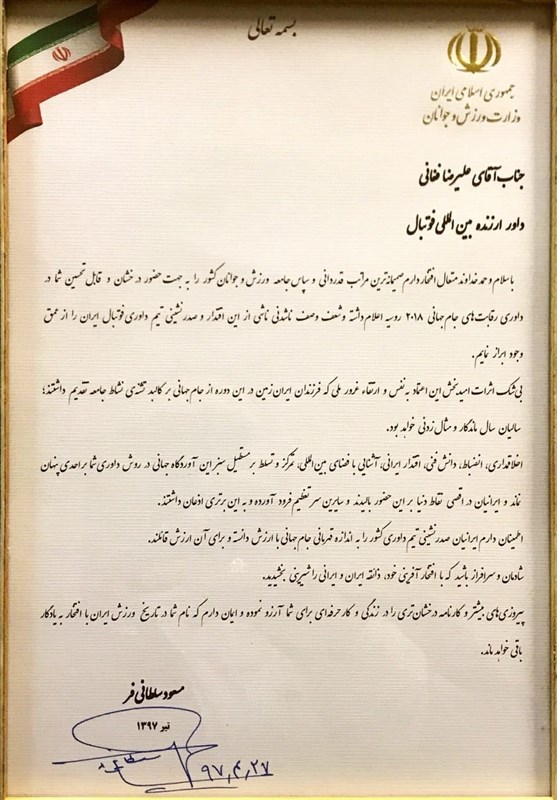 بسمه تعالی
جمهوری اسلامی ایران
وزارت ورزش و جوانان
جناب آقای علیرضا فغانی
داور ارزنده بین المللی فوتبال
با سلام و حمد خداوند متعال افتخار دارم صمیمانه‌ترین مراتب قدردانی و سپاس جامعه ورزش و جوانان کشور را به جهت حضور درخشان و قابل تحسین شما در
داوری رقابت‌های جام جهانی ۲۰۱۸ روسیه اعلام داشته و شعف وصف ناشدنی ناشی از این اقتدار و صدرنشینی تیم داوری فوتبال ایران را از عمق
وجود ابراز نمایم.
بی‌شک اثرات امیدبخش این اعتماد به نفس و ارتقاء غرور ملی که فرزندان ایران زمین در این دوره از جام جهانی بر کالبد تشنه‌ی نشاط جامعه تقدیم داشتند؛
سالیان سال ماندگار و مثال زدنی خواهد بود.
اخلاقمداری، انضباط، دانش فنی، اقتدار ایرانی، آشنایی با فضای بین‌المللی، تمرکز و تسلط بر مستطیل سبز این آوردگاه جهانی در روش داوری شما بر احدی پنهان
نماند و ایرانیان در اقصی نقاط دنیا بر این حضور بالیدند و سایرین سر تعظیم فرود آورده و به این برتری اذعان داشتند.
اطمینان دارم ایرانیان صدرنشینی تیم داوری کشور را به اندازه قهرمانی جام جهانی با ارزش دانسته و برای آن ارزش قائلند.
شادمان و سرافراز باشید که با افتخار آفرینی خود، ذائقه ایران و ایرانی را شیرینی بخشیدید.
پیروزی‌های بیشتر و کارنامه درخشان‌تری را در زندگی و کار حرفه‌ای برای شما آرزو نموده و ایمان دارم که نام شما در تاریخ ورزش ایران با افتخار به یادگار
باقی خواهد ماند.
مسعود سلطانی فر
تیر ۱۳۹۷
۹۷٫۴٫۲۷